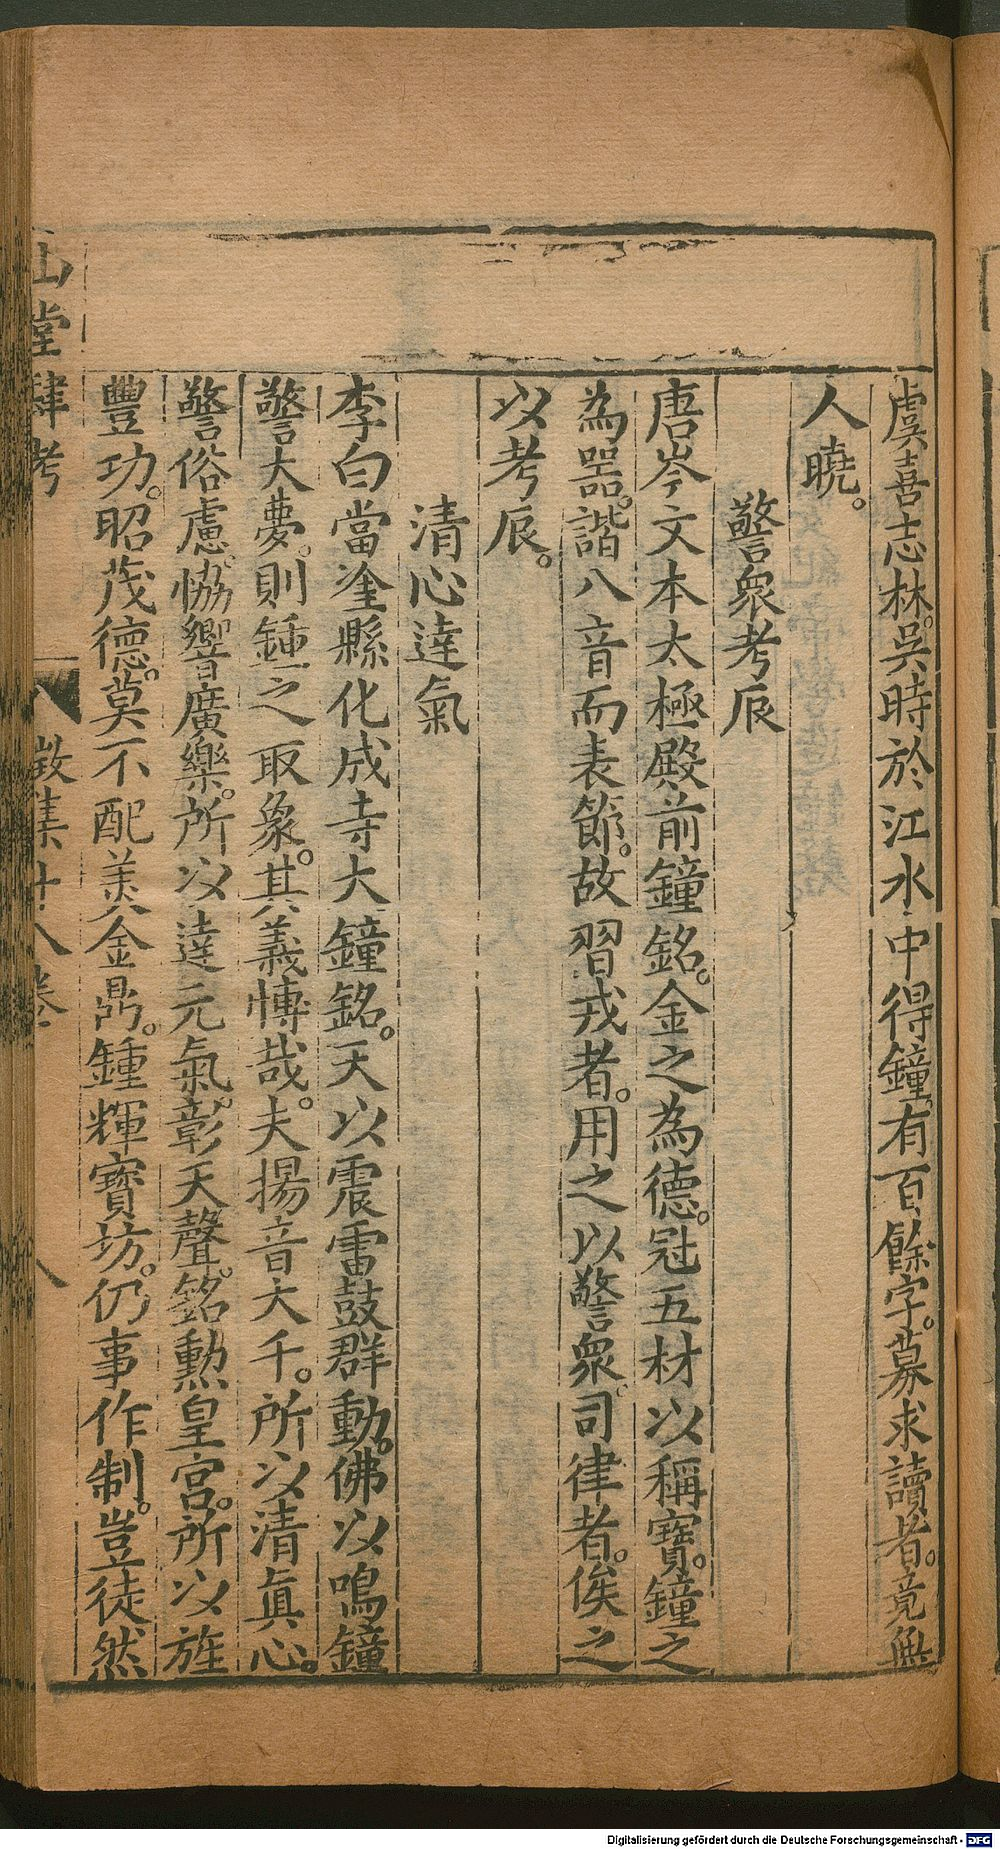 虞喜志林。吳時於江水中得鐘。有百餘字。募求讀者。竟無
人曉。
警眾考辰
唐岑文本太極殿前鐘銘。金之為德。冠五材以稱寶。鐘之
為噐。諧八音而表節。故習戎者。用之以警眾。司律者。俟之
以考辰。
清心達氣
李白當塗縣化成寺大鐘銘。天以震雷鼓群動。佛以鳴鐘
警大夢。則鍾之取象。其義博哉。夫揚音大千。所以清真心。
警俗慮。恊響廣樂。所以達元氣。彰天聲。銘勳皇宮。所以旌
豐功。昭茂德。莫不配美金鼎。鍾輝寶坊。仍事作制。豈徒然
山堂肆考
徵集廿八卷
八
Digitalisierung gefördert durch die Deutsche Forschungsgemeinschaft - DFG